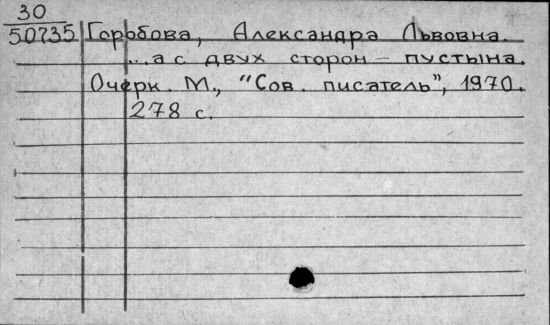 30
50735 Горобова, Александра Львовна.
...а с двух сторон – пустына.
Очерк. М., "Сов. писатель", 1970.
278 с.